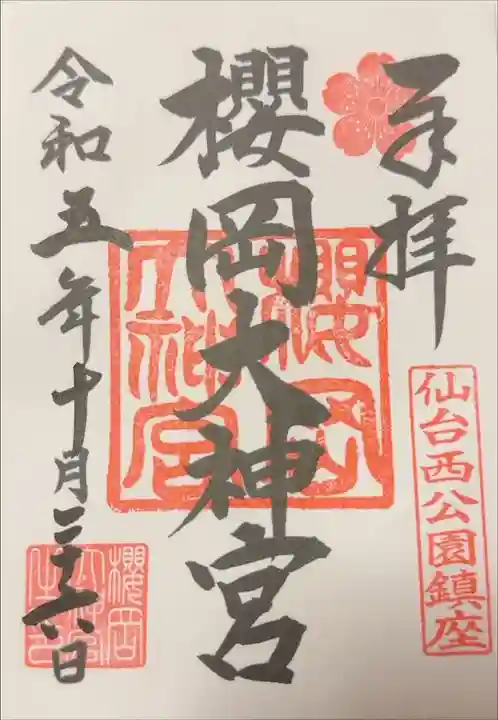 奉拝
仙台西公園鎮座
櫻岡大神宮
櫻岡大神宮
令和五年十月二十六日